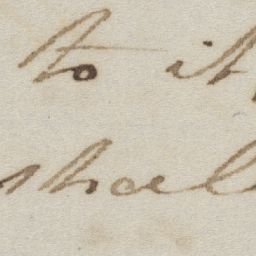 to it
shall